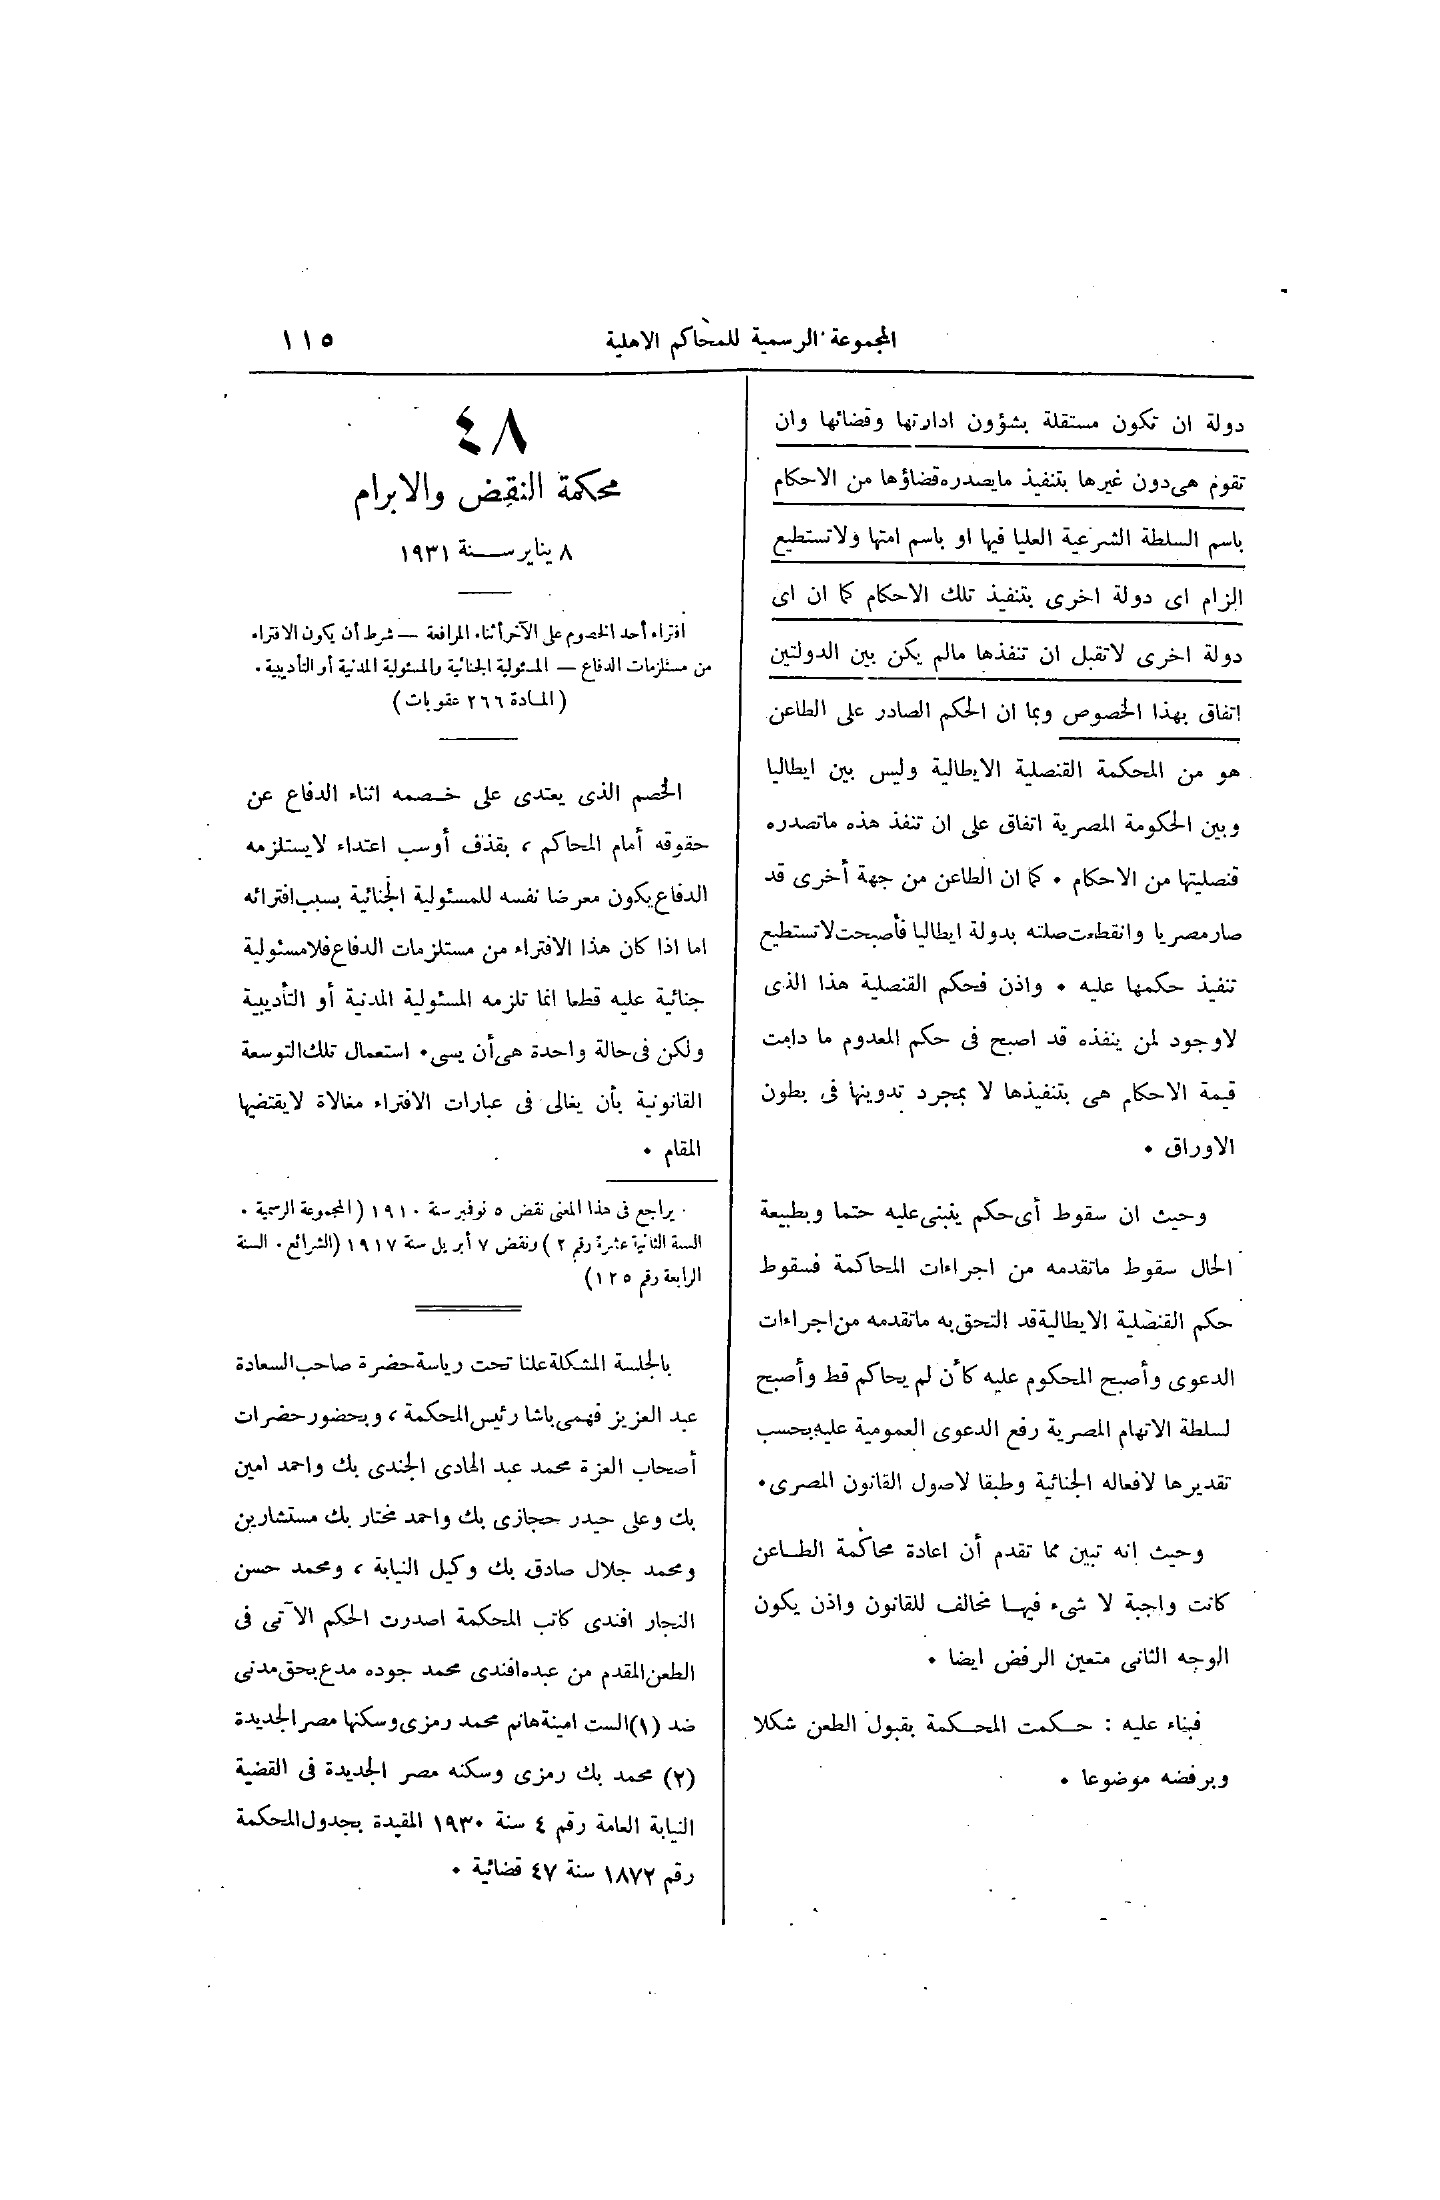 المجموعة الرسمية للمحاكم الاهلية ١١٥
دولة ان تكون مستقلة بشؤون ادارتها وقضائها وان
تقوم هى دون غيرها بتنفيذ مايصدره قضاؤها من الاحكام
باسم السلطة الشرعية العليا فيها او باسم امتها ولاتستطيع
الزام اى دولة اخرى بتنفيذ تلك الاحكام كما ان اى
دولة اخرى لاتقبل ان تنفذها مالم يكن بين الدولتين
اتفاق بهذا الخصوص وبما ان الحكم الصادر على الطاعن
هو من المحكمة القنصلية الايطالية وليس بين ايطاليا
وبين الحكومة المصرية اتفاق على ان تنفذ هذه ماتصدره
قنصليتها من الاحكام ٠ كما ان الطاعن من جهة أخرى قد
صار مصريا وانقطعت صلته بدولة ايطاليا فأصبحت لاتستطيع
تنفيذ حكمها عليه ٠ واذن فحكم القنصلية هذا الذى
لاوجود لمن ينفذه قد اصبح فى حكم المعدوم ما دامت
قيمة الاحكام هى بتنفيذها لا بمجرد تدوينها فى بطون
الاوراق ٠
وحيث ان سقوط أى حكم ينبنى عليه حتما وبطبيعة
الحال سقوط ماتقدمه من اجراءات المحاكمة فسقوط
حكم القنصلية الايطالية قد التحق به ماتقدمه من اجراءات
الدعوى وأصبح المحكوم عليه كأن لم يحاكم قط وأصبح
لسلطة الاتهام المصرية رفع الدعوى العمومية عليه بحسب
تقديرها لافعاله الجنائية وطبقا لاصول القانون المصرى٠
وحيث انه تبين مما تقدم أن اعادة محاكمة الطاعن
كانت واجبة لا شىء فيها مخالف للقانون واذن يكون
الوجه الثانى متعين الرفض ايضا ٠
فبناء عليه : حكمت المحكمة بقبول الطعن شكلا
وبرفضه موضوعا ٠
٤٨
محكمة النقض والابرام
٨ يناير سنة ١٩٣١
افتراء أحد الخصوم على الآخر أثناء المرافعة — شرط أن يكون الافتراء
من مستلزمات الدفاع — المسئولية الجنائية والمسئولية المدنية أو التأديبية ٠
(المادة ٢٦٦ عقوبات)
الخصم الذى يعتدى على خصمه اثناء الدفاع عن
حقوقه أمام المحاكم ، بقذف أوسب اعتداء لايستلزمه
الدفاع يكون معرضا نفسه للمسئولية الجنائية بسبب افترائه
اما اذا كان هذا الافتراء من مستلزمات الدفاع فلا مسئولية
جنائية عليه قطعا انما تلزمه المسئولية المدنية أو التأديبية
ولكن فى حالة واحدة هى أن يسىء استعمال تلك التوسعة
القانونية بأن يغالى فى عبارات الافتراء مغالاة لايقتضيها
المقام ٠
يراجع فى هذا المعنى نقض ٥ نوفمبر سنة ١٩١٠ (المجموعة الرسمية ٠
السنة الثانية عشرة رقم ٢ ) ونقض ٧ أبريل سنة ١٩١٧ (الشرائع ٠ السنة
الرابعة رقم ١٢٥)
بالجلسة المشكلة علنا تحت رياسة حضرة صاحب السعادة
عبد العزيز فهمى باشا رئيس المحكمة ، وبحضور حضرات
أصحاب العزة محمد عبد الهادى الجندى بك واحمد امين
بك وعلى حيدر حجازى بك واحمد مختار بك مستشارين
ومحمد جلال صادق بك وكيل النيابة ، ومحمد حسن
النجار افندى كاتب المحكمة اصدرت الحكم الآتى فى
الطعن المقدم من عبده افندى محمد جوده مدع بحق مدنى
ضد (١) الست امينة هانم محمد رمزى وسكنها مصر الجديدة
(٢) محمد بك رمزى وسكنه مصر الجديدة فى القضية
النيابة العامة رقم ٤ سنة ١٩٣٠ المقيدة بجدول المحكمة
رقم ١٨٧٢ سنة ٤٧ قضائية ٠